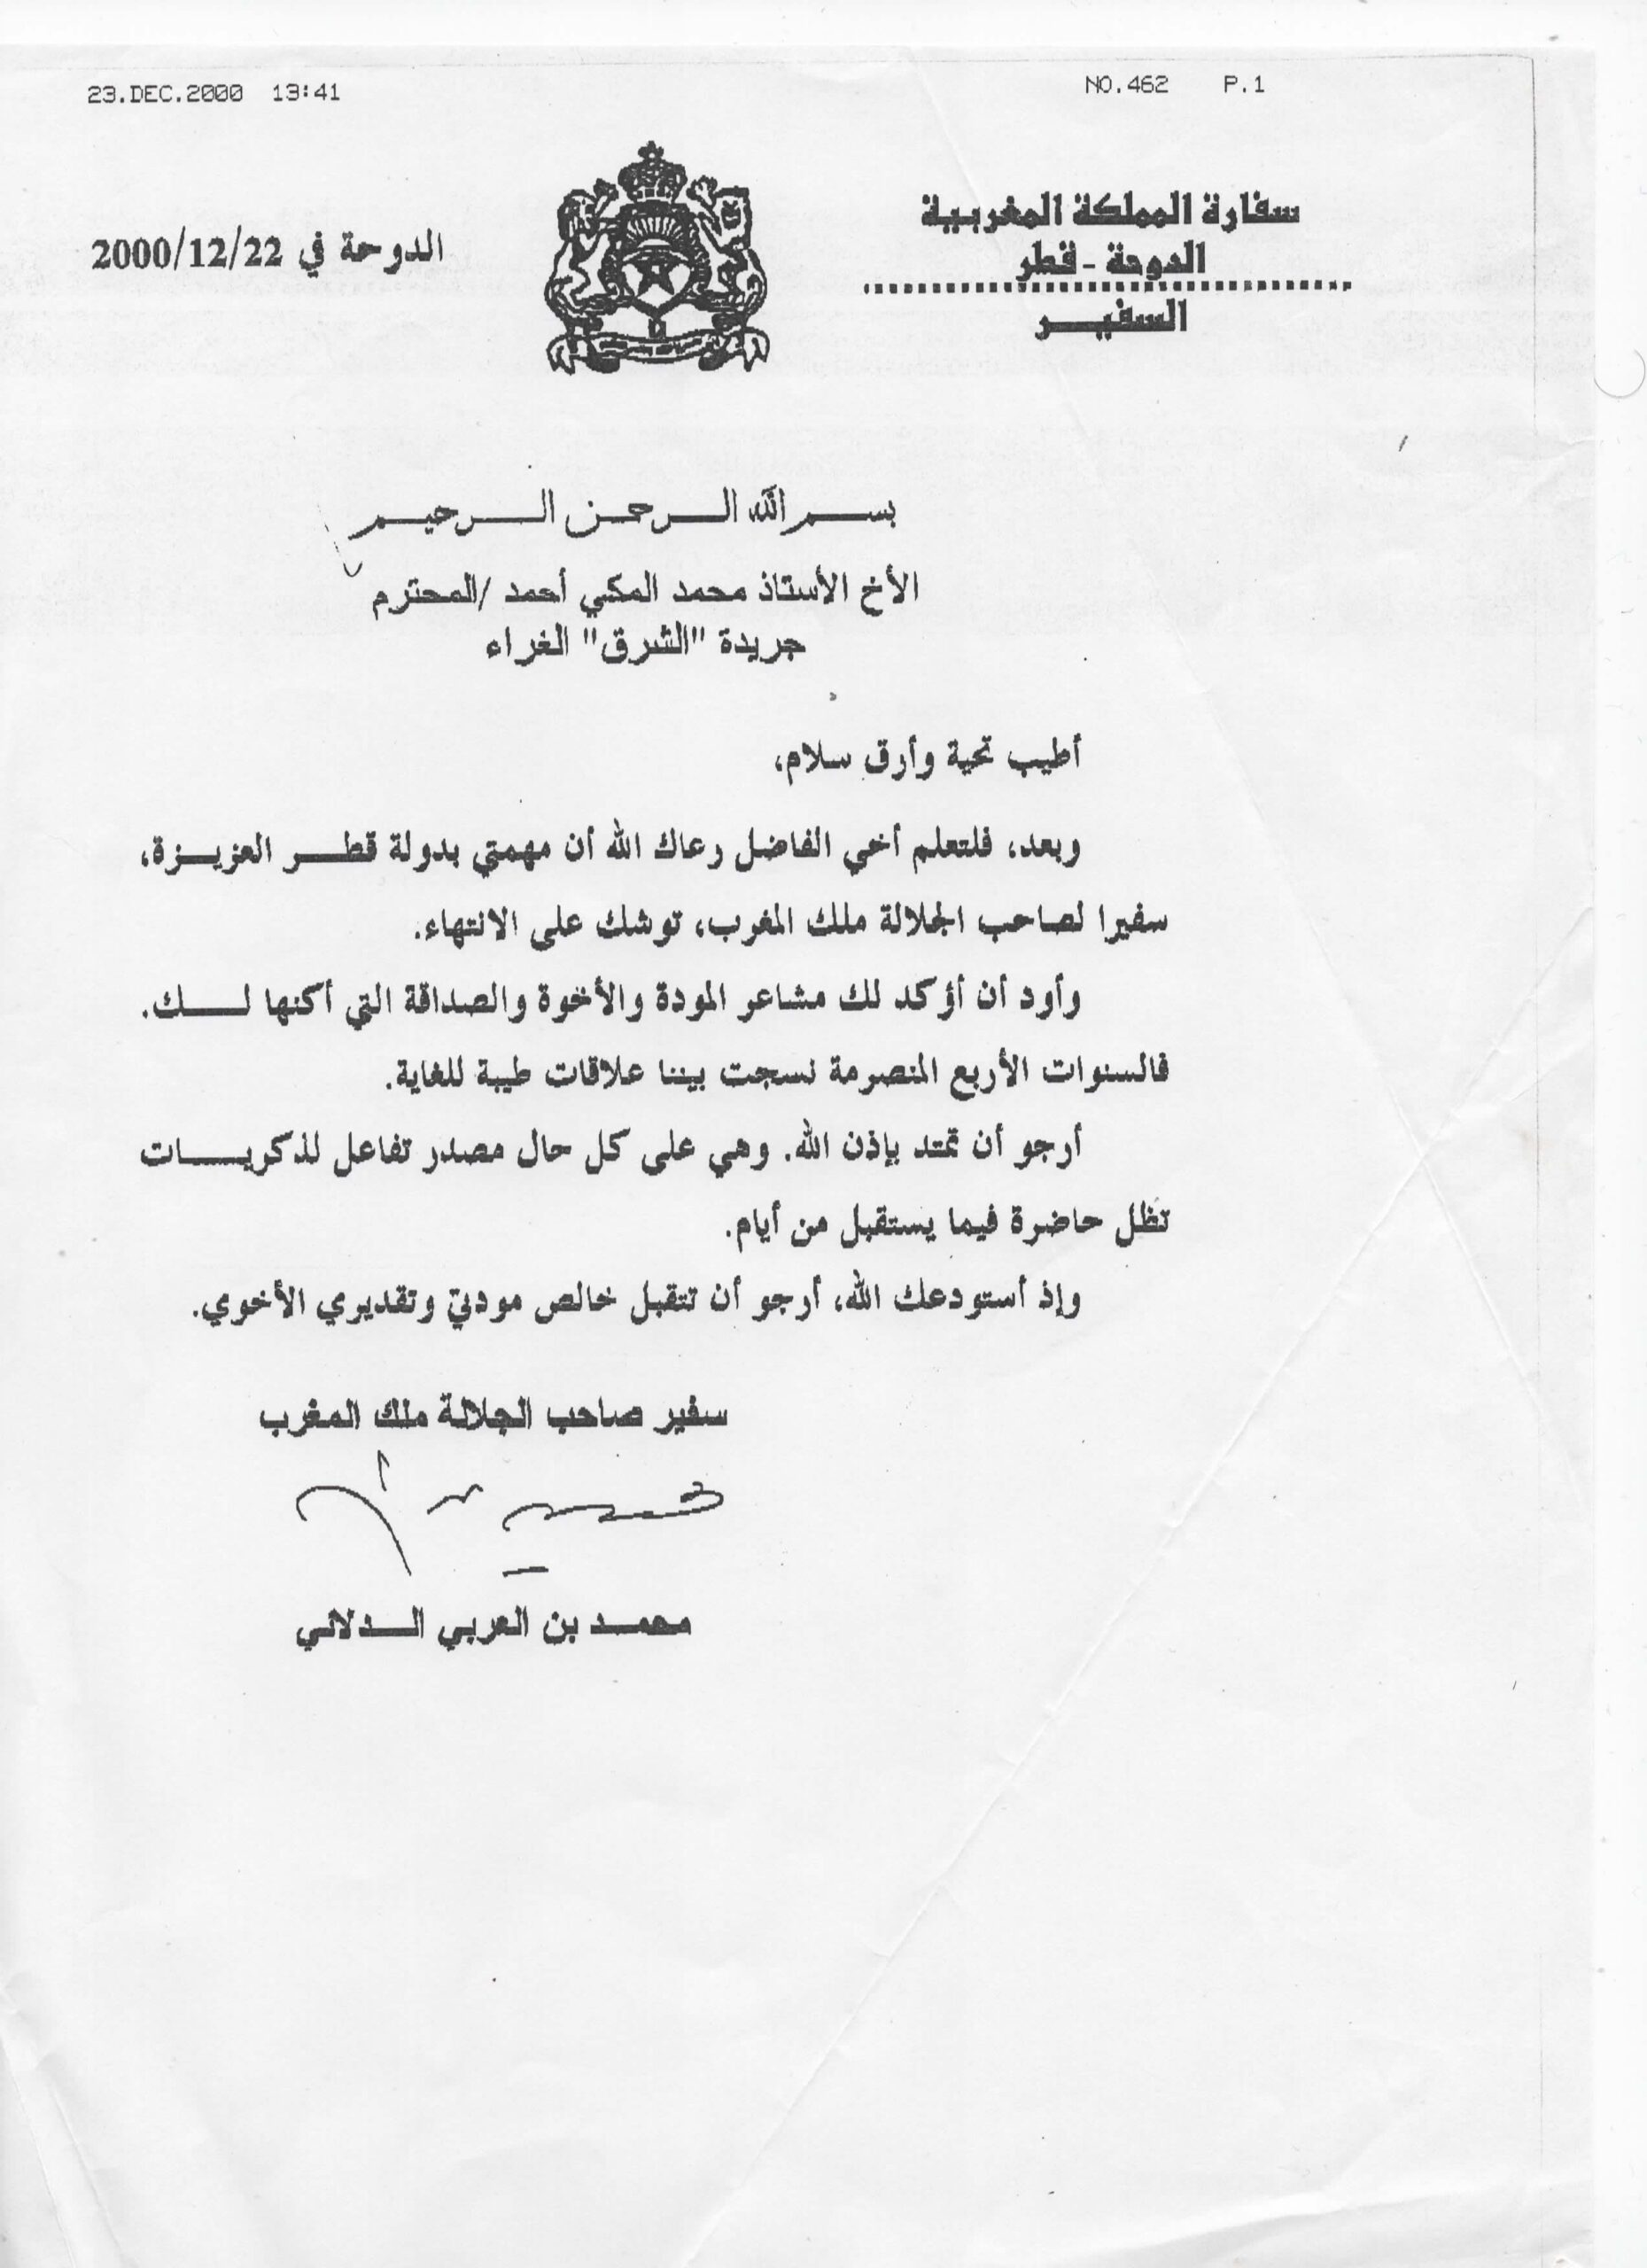 23.DEC.2000 13:41 NO.462 P.1
سفارة المملكة المغربية
الدوحة - قطر
السفيــر
الدوحة في 2000/12/22
بســم الله الــرحمــن الــرحيــم
الأخ الأستاذ محمد المكي أحمد /المحترم
جريدة "الشرق" الغراء
أطيب تحية وأرق سلام،
وبعد، فلتعلم أخي الفاضل رعاك الله أن مهمتي بدولة قطــر العزيــزة،
سفيرا لصاحب الجلالة ملك المغرب، توشك على الانتهاء.
وأود أن أؤكد لك مشاعر المودة والأخوة والصداقة التي أكنها لــك.
فالسنوات الأربع المنصرمة نسجت بيننا علاقات طيبة للغاية.
أرجو أن تمتد بإذن الله. وهي على كل حال مصدر تفاعل لذكريــات
تظل حاضرة فيما يستقبل من أيام.
وإذ أستودعك الله، أرجو أن تتقبل خالص مودتي وتقديري الأخوي.
سفير صاحب الجلالة ملك المغرب
محمــد بن العربي الــدلائي